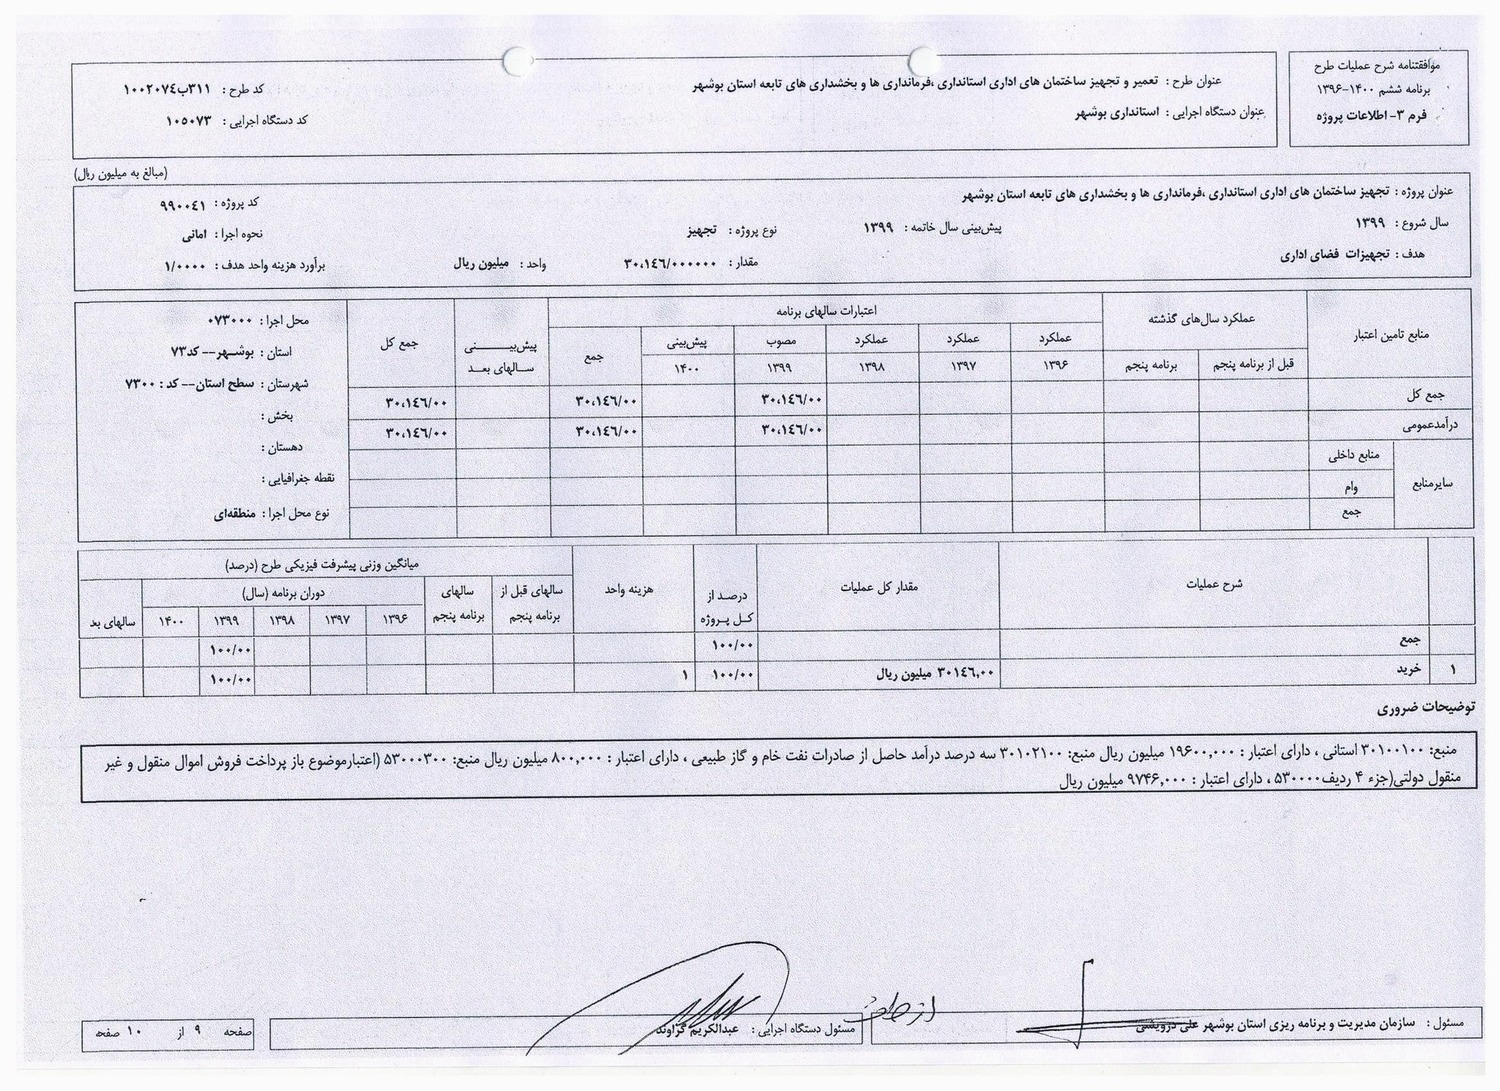 موافقتنامه شرح عملیات طرح
برنامه ششم ۱۴۰۰-۱۳۹۶
فرم ۳- اطلاعات پروژه
عنوان طرح : تعمیر و تجهیز ساختمان های اداری استانداری ،فرمانداری ها و بخشداری های تابعه استان بوشهر
کد طرح : ۳۱۱ب۱۰۰۲۰۷۴
عنوان دستگاه اجرایی : استانداری بوشهر
کد دستگاه اجرایی : ۱۰۵۰۷۳
(مبالغ به میلیون ریال)
عنوان پروژه : تجهیز ساختمان های اداری استانداری ،فرمانداری ها و بخشداری های تابعه استان بوشهر
کد پروژه : ۹۹۰۰۴۱
سال شروع : ۱۳۹۹
پیش‌بینی سال خاتمه : ۱۳۹۹
نوع پروژه : تجهیز
نحوه اجرا : امانی
هدف : تجهیزات فضای اداری
مقدار : ۳۰،۱۴۶/۰۰۰۰۰۰
واحد : میلیون ریال
برآورد هزینه واحد هدف : ۱/۰۰۰۰
منابع تامین اعتبار
عملکرد سال‌های گذشته
اعتبارات سالهای برنامه
پیش‌بینی سالهای بعد
جمع کل
قبل از برنامه پنجم
برنامه پنجم
عملکرد ۱۳۹۶
عملکرد ۱۳۹۷
عملکرد ۱۳۹۸
مصوب ۱۳۹۹
پیش‌بینی ۱۴۰۰
جمع
جمع کل ۳۰،۱۴۶/۰۰ ۳۰،۱۴۶/۰۰ ۳۰،۱۴۶/۰۰
درآمدعمومی ۳۰،۱۴۶/۰۰ ۳۰،۱۴۶/۰۰ ۳۰،۱۴۶/۰۰
سایرمنابع
منابع داخلی
وام
جمع
محل اجرا : ۰۷۳۰۰۰
استان : بوشهر-- کد۷۳
شهرستان : سطح استان-- کد : ۷۳۰۰
بخش :
دهستان :
نقطه جغرافیایی :
نوع محل اجرا : منطقه‌ای
شرح عملیات
مقدار کل عملیات
درصد از کل پروژه
هزینه واحد
میانگین وزنی پیشرفت فیزیکی طرح (درصد)
سالهای قبل از برنامه پنجم
سالهای برنامه پنجم
دوران برنامه (سال)
۱۳۹۶ ۱۳۹۷ ۱۳۹۸ ۱۳۹۹ ۱۴۰۰
سالهای بعد
جمع ۱۰۰/۰۰ ۱۰۰/۰۰
۱ خرید ۳۰۱۴۶,۰۰ میلیون ریال ۱۰۰/۰۰ ۱ ۱۰۰/۰۰
توضیحات ضروری
منبع: ۳۰۱۰۰۱۰۰ استانی ، دارای اعتبار : ۱۹۶۰۰,۰۰۰ میلیون ریال منبع: ۳۰۱۰۲۱۰۰ سه درصد درآمد حاصل از صادرات نفت خام و گاز طبیعی ، دارای اعتبار : ۸۰۰,۰۰۰ میلیون ریال منبع: ۵۳۰۰۰۳۰۰ (اعتبارموضوع باز پرداخت فروش اموال منقول و غیر
منقول دولتی(جزء ۴ ردیف۵۳۰۰۰۰ ، دارای اعتبار : ۹۷۴۶,۰۰۰ میلیون ریال
از طرف
مسئول : سازمان مدیریت و برنامه ریزی استان بوشهر علی درویشی
مسئول دستگاه اجرایی : عبدالکریم گراوند
صفحه ۹ از ۱۰ صفحه